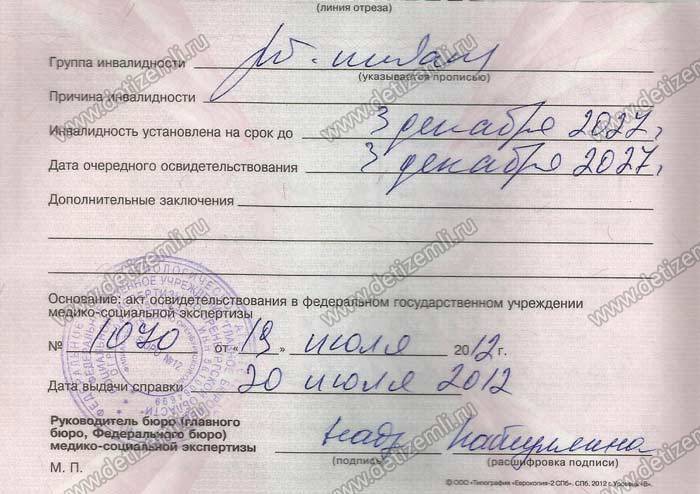 (линия отреза)
Группа инвалидности реб. - инвалид
(указывается прописью)
Причина инвалидности
Инвалидность установлена на срок до 3 декабря 2027 г.
Дата очередного освидетельствования 3 декабря 2027 г.
Дополнительные заключения
Основание: акт освидетельствования в федеральном государственном учреждении
медико-социальной экспертизы
№ 1070 от «19» июля 2012 г.
Дата выдачи справки 20 июля 2012
Руководитель бюро (главного
бюро, Федерального бюро)
медико-социальной экспертизы
(подпись) (расшифровка подписи)
М. П.
© ООО «Типография «Еврокопия-2 СПб». СПб, 2012 г. Уровень «В».
www.detizemli.ru